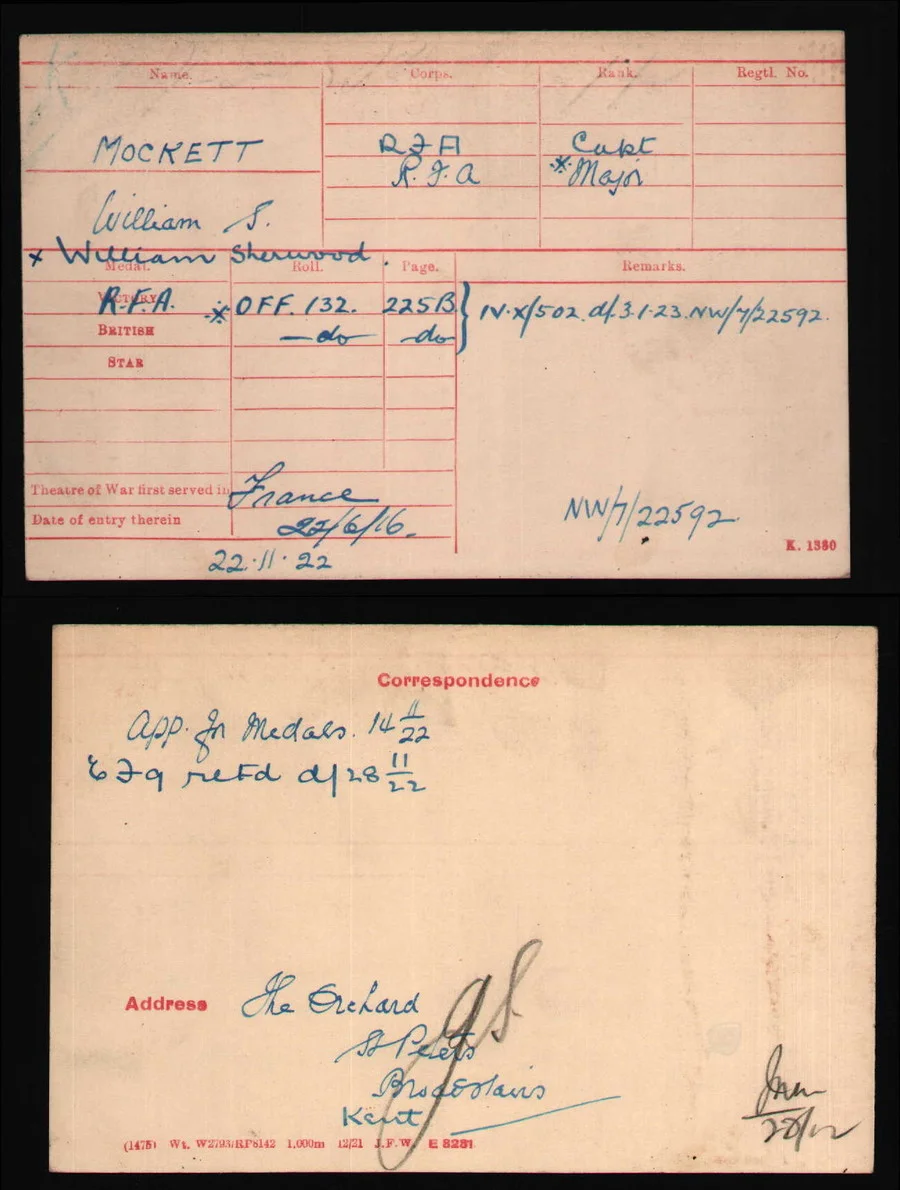 Name. Corps. Rank. Regtl. No.
MOCKETT RFA Capt
R.F.A * Major
William S.
x William Sherwood.
Medal. Roll. Page. Remarks.
VICTORY R.F.A. * OFF. 132. 225B } IV.X/502.d/.3.1.23.NW/7/22592.
BRITISH —do— —do—
STAR
Theatre of War first served in France
Date of entry therein 22/6/16.
NW/7/22592.
K. 1380
22.11.22
Correspondence
App. for Medals. 14 11/22
retd d/28 11/22
Address The Orchard
St Peters
Broadstairs
Kent
(1475) Wt. W2793/RP8142 1,000m 12/21 J.F.W. E 8281